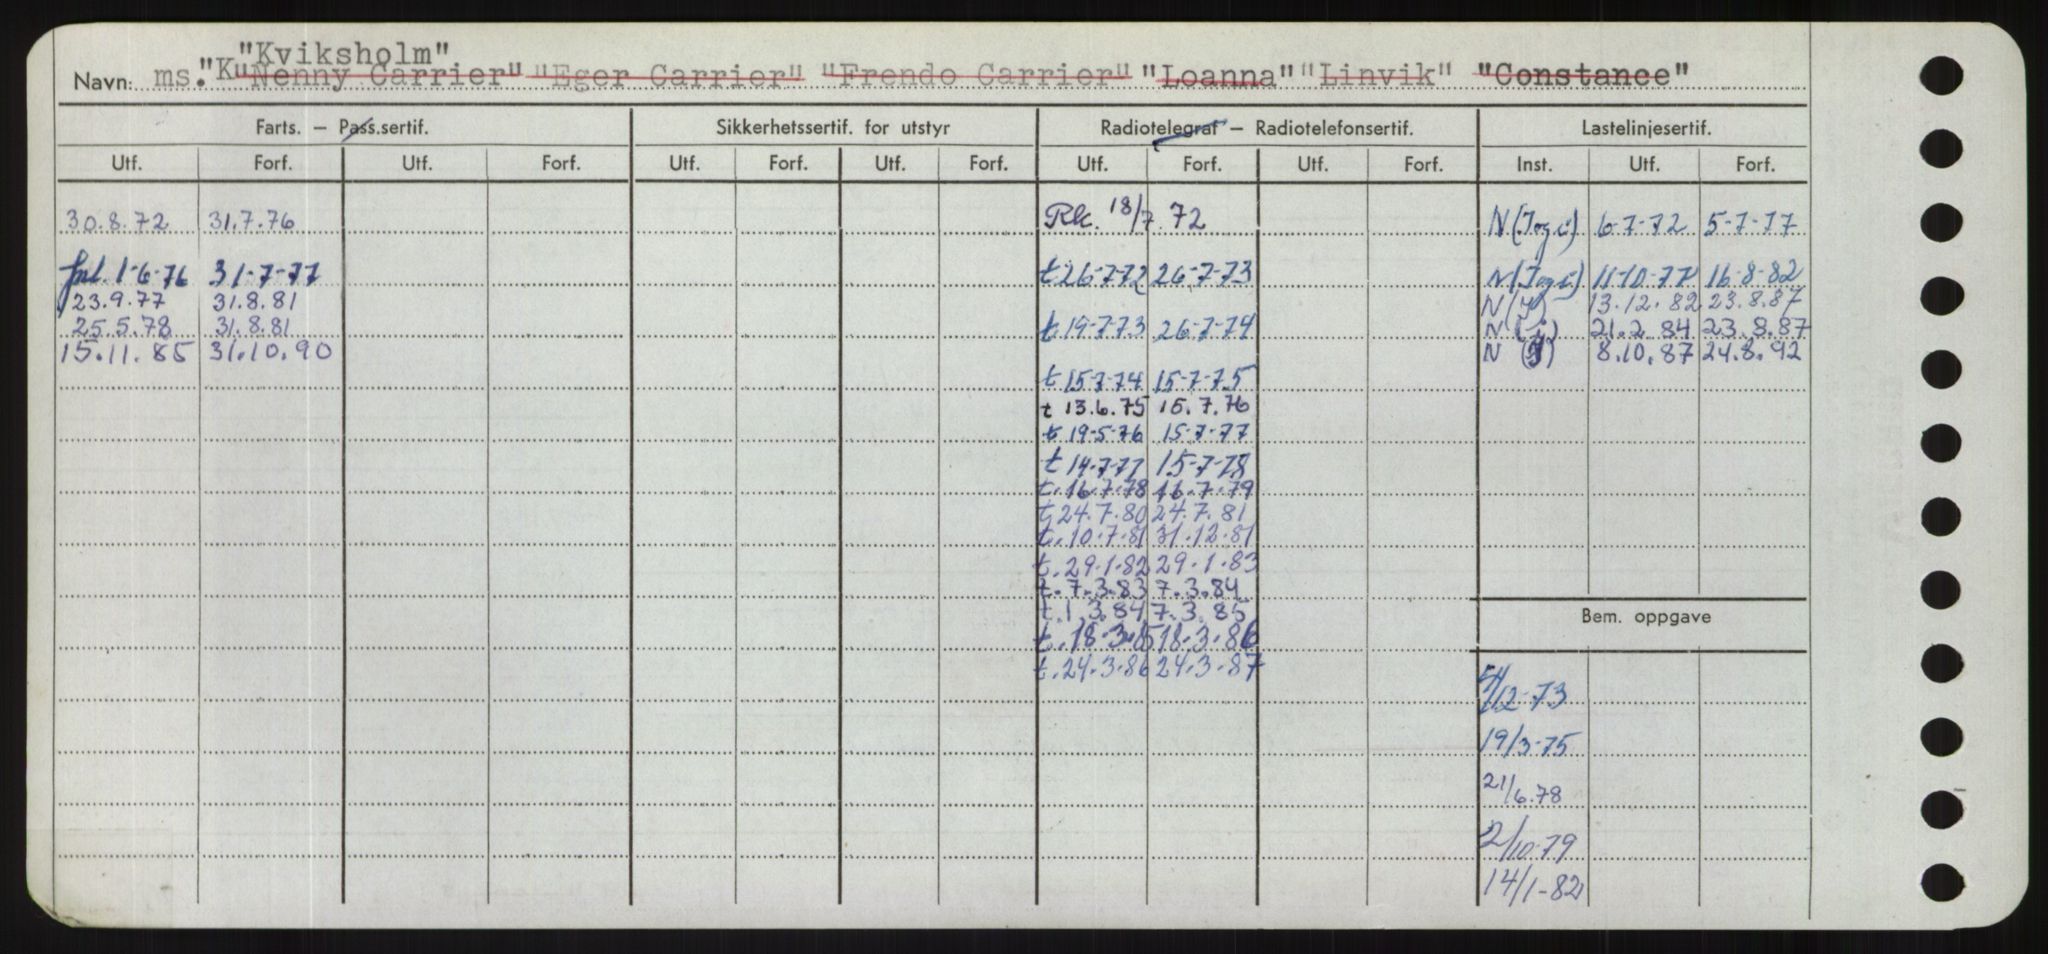 "Kviksholm"
Navn: ms. "K "Nenny Carrier" "Eger Carrier" "Frendo Carrier" "Loanna" "Linvik" "Constance"
Farts. – Pass.sertif. Sikkerhetssertif. for utstyr Radiotelegraf – Radiotelefonsertif. Lastelinjesertif.
Utf. Forf. Utf. Forf. Utf. Forf. Utf. Forf. Utf. Forf. Utf. Forf. Inst. Utf. Forf.
30.8.72 31.7.76 Rk. 18/7 72 N (Jog i) 6-7-72 5-7-77
fnl. 1-6-76 31-7-77 t 26-7-72 26-7-73 N (Jog i) 11-10-77 16-8-82
23.9.77 31.8.81 N (J) 13.12.82 23.8.87
25.5.78 31.8.81 t. 19-7-73 26-7-74 N (j) 21.2.84 23.8.87
15.11.85 31.10.90 N (J) 8.10.87 24.8.92
t 15-7-74 15-7-75
t 13.6.75 15.7.76
t 19-5-76 15-7-77
t 14-7-77 15-7-78
t. 16.7.78 16.7.79
t 24.7.80 24.7.81
t. 10.7.81 31.12.81
t. 29.1.82 29.1.83
t. 7.3.83 7.3.84
t. 1.3.84 7.3.85
Bem. oppgave
t. 18.3.85 18.3.86
t. 24.3.86 24.3.87
4/12-73
19/3-75
21/6.78
2/10-79
14/1-82